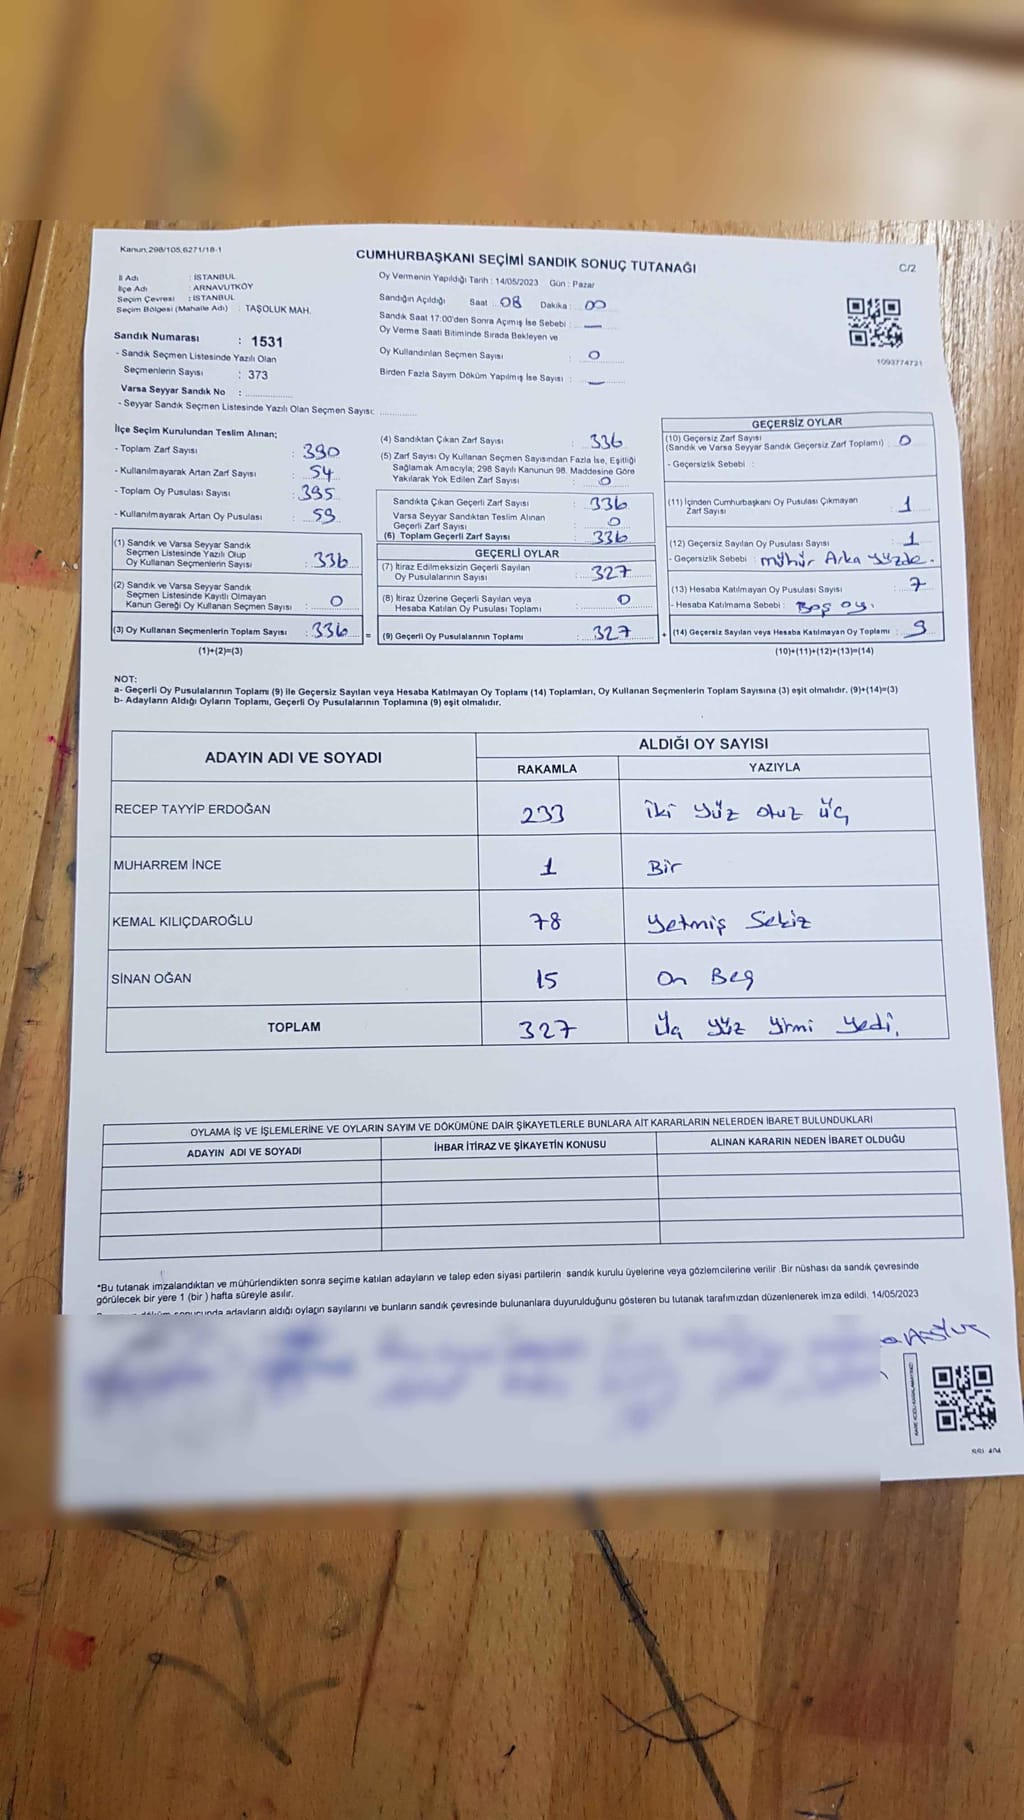 Kanun,298/105,6271/18-1
CUMHURBAŞKANI SEÇİMİ SANDIK SONUÇ TUTANAĞI
C/2
İl Adı : İSTANBUL
İlçe Adı : ARNAVUTKÖY
Seçim Çevresi : İSTANBUL
Seçim Bölgesi (Mahalle Adı) : TAŞOLUK MAH.
Sandık Numarası : 1531
- Sandık Seçmen Listesinde Yazılı Olan
Seçmenlerin Sayısı : 373
Varsa Seyyar Sandık No :
- Seyyar Sandık Seçmen Listesinde Yazılı Olan Seçmen Sayısı:
Oy Vermenin Yapıldığı Tarih : 14/05/2023 Gün : Pazar
Sandığın Açıldığı Saat : 08 Dakika : 00
Sandık Saat 17:00'den Sonra Açımış İse Sebebi : —
Oy Verme Saati Bitiminde Sırada Bekleyen ve
Oy Kullandırılan Seçmen Sayısı : 0
Birden Fazla Sayım Döküm Yapılmış İse Sayısı : —
1093774721
İlçe Seçim Kurulundan Teslim Alınan;
- Toplam Zarf Sayısı : 390
- Kullanılmayarak Artan Zarf Sayısı : 54
- Toplam Oy Pusulası Sayısı : 395
- Kullanılmayarak Artan Oy Pusulası : 59
(1) Sandık ve Varsa Seyyar Sandık
Seçmen Listesinde Yazılı Olup
Oy Kullanan Seçmenlerin Sayısı : 336
(2) Sandık ve Varsa Seyyar Sandık
Seçmen Listesinde Kayıtlı Olmayan
Kanun Gereği Oy Kullanan Seçmen Sayısı : 0
(3) Oy Kullanan Seçmenlerin Toplam Sayısı : 336
(1)+(2)=(3)
(4) Sandıktan Çıkan Zarf Sayısı : 336
(5) Zarf Sayısı Oy Kullanan Seçmen Sayısından Fazla İse, Eşitliği
Sağlamak Amacıyla; 298 Sayılı Kanunun 98. Maddesine Göre
Yakılarak Yok Edilen Zarf Sayısı : 0
Sandıkta Çıkan Geçerli Zarf Sayısı : 336
Varsa Seyyar Sandıktan Teslim Alınan
Geçerli Zarf Sayısı : 0
(6) Toplam Geçerli Zarf Sayısı : 336
GEÇERLİ OYLAR
(7) İtiraz Edilmeksizin Geçerli Sayılan
Oy Pusulalarının Sayısı : 327
(8) İtiraz Üzerine Geçerli Sayılan veya
Hesaba Katılan Oy Pusulası Toplamı : 0
= (9) Geçerli Oy Pusulalarının Toplamı : 327 +
GEÇERSİZ OYLAR
(10) Geçersiz Zarf Sayısı
(Sandık ve Varsa Seyyar Sandık Geçersiz Zarf Toplamı) : 0
- Geçersizlik Sebebi :
(11) İçinden Cumhurbaşkanı Oy Pusulası Çıkmayan
Zarf Sayısı : 1
(12) Geçersiz Sayılan Oy Pusulası Sayısı : 1
- Geçersizlik Sebebi : mühür Arka yüzde.
(13) Hesaba Katılmayan Oy Pusulası Sayısı : 7
- Hesaba Katılmama Sebebi : Boş oy.
(14) Geçersiz Sayılan veya Hesaba Katılmayan Oy Toplamı : 9
(10)+(11)+(12)+(13)=(14)
NOT:
a- Geçerli Oy Pusulalarının Toplamı (9) ile Geçersiz Sayılan veya Hesaba Katılmayan Oy Toplamı (14) Toplamları, Oy Kullanan Seçmenlerin Toplam Sayısına (3) eşit olmalıdır. (9)+(14)=(3)
b- Adayların Aldığı Oyların Toplamı, Geçerli Oy Pusulalarının Toplamına (9) eşit olmalıdır.
ADAYIN ADI VE SOYADI ALDIĞI OY SAYISI
RAKAMLA YAZIYLA
RECEP TAYYİP ERDOĞAN 233 iki yüz otuz üç
MUHARREM İNCE 1 Bir
KEMAL KILIÇDAROĞLU 78 Yetmiş Sekiz
SİNAN OĞAN 15 On Beş
TOPLAM 327 Üç yüz yirmi yedi.
OYLAMA İŞ VE İŞLEMLERİNE VE OYLARIN SAYIM VE DÖKÜMÜNE DAİR ŞİKAYETLERLE BUNLARA AİT KARARLARIN NELERDEN İBARET BULUNDUKLARI
ADAYIN ADI VE SOYADI İHBAR İTİRAZ VE ŞİKAYETİN KONUSU ALINAN KARARIN NEDEN İBARET OLDUĞU
*Bu tutanak imzalandıktan ve mühürlendikten sonra seçime katılan adayların ve talep eden siyasi partilerin sandık kurulu üyelerine veya gözlemcilerine verilir .Bir nüshası da sandık çevresinde
görülecek bir yere 1 (bir ) hafta süreyle asılır.
adayların aldığı oyların sayılarını ve bunların sandık çevresinde bulunanlara duyurulduğunu gösteren bu tutanak tarafımızdan düzenlenerek imza edildi. 14/05/2023